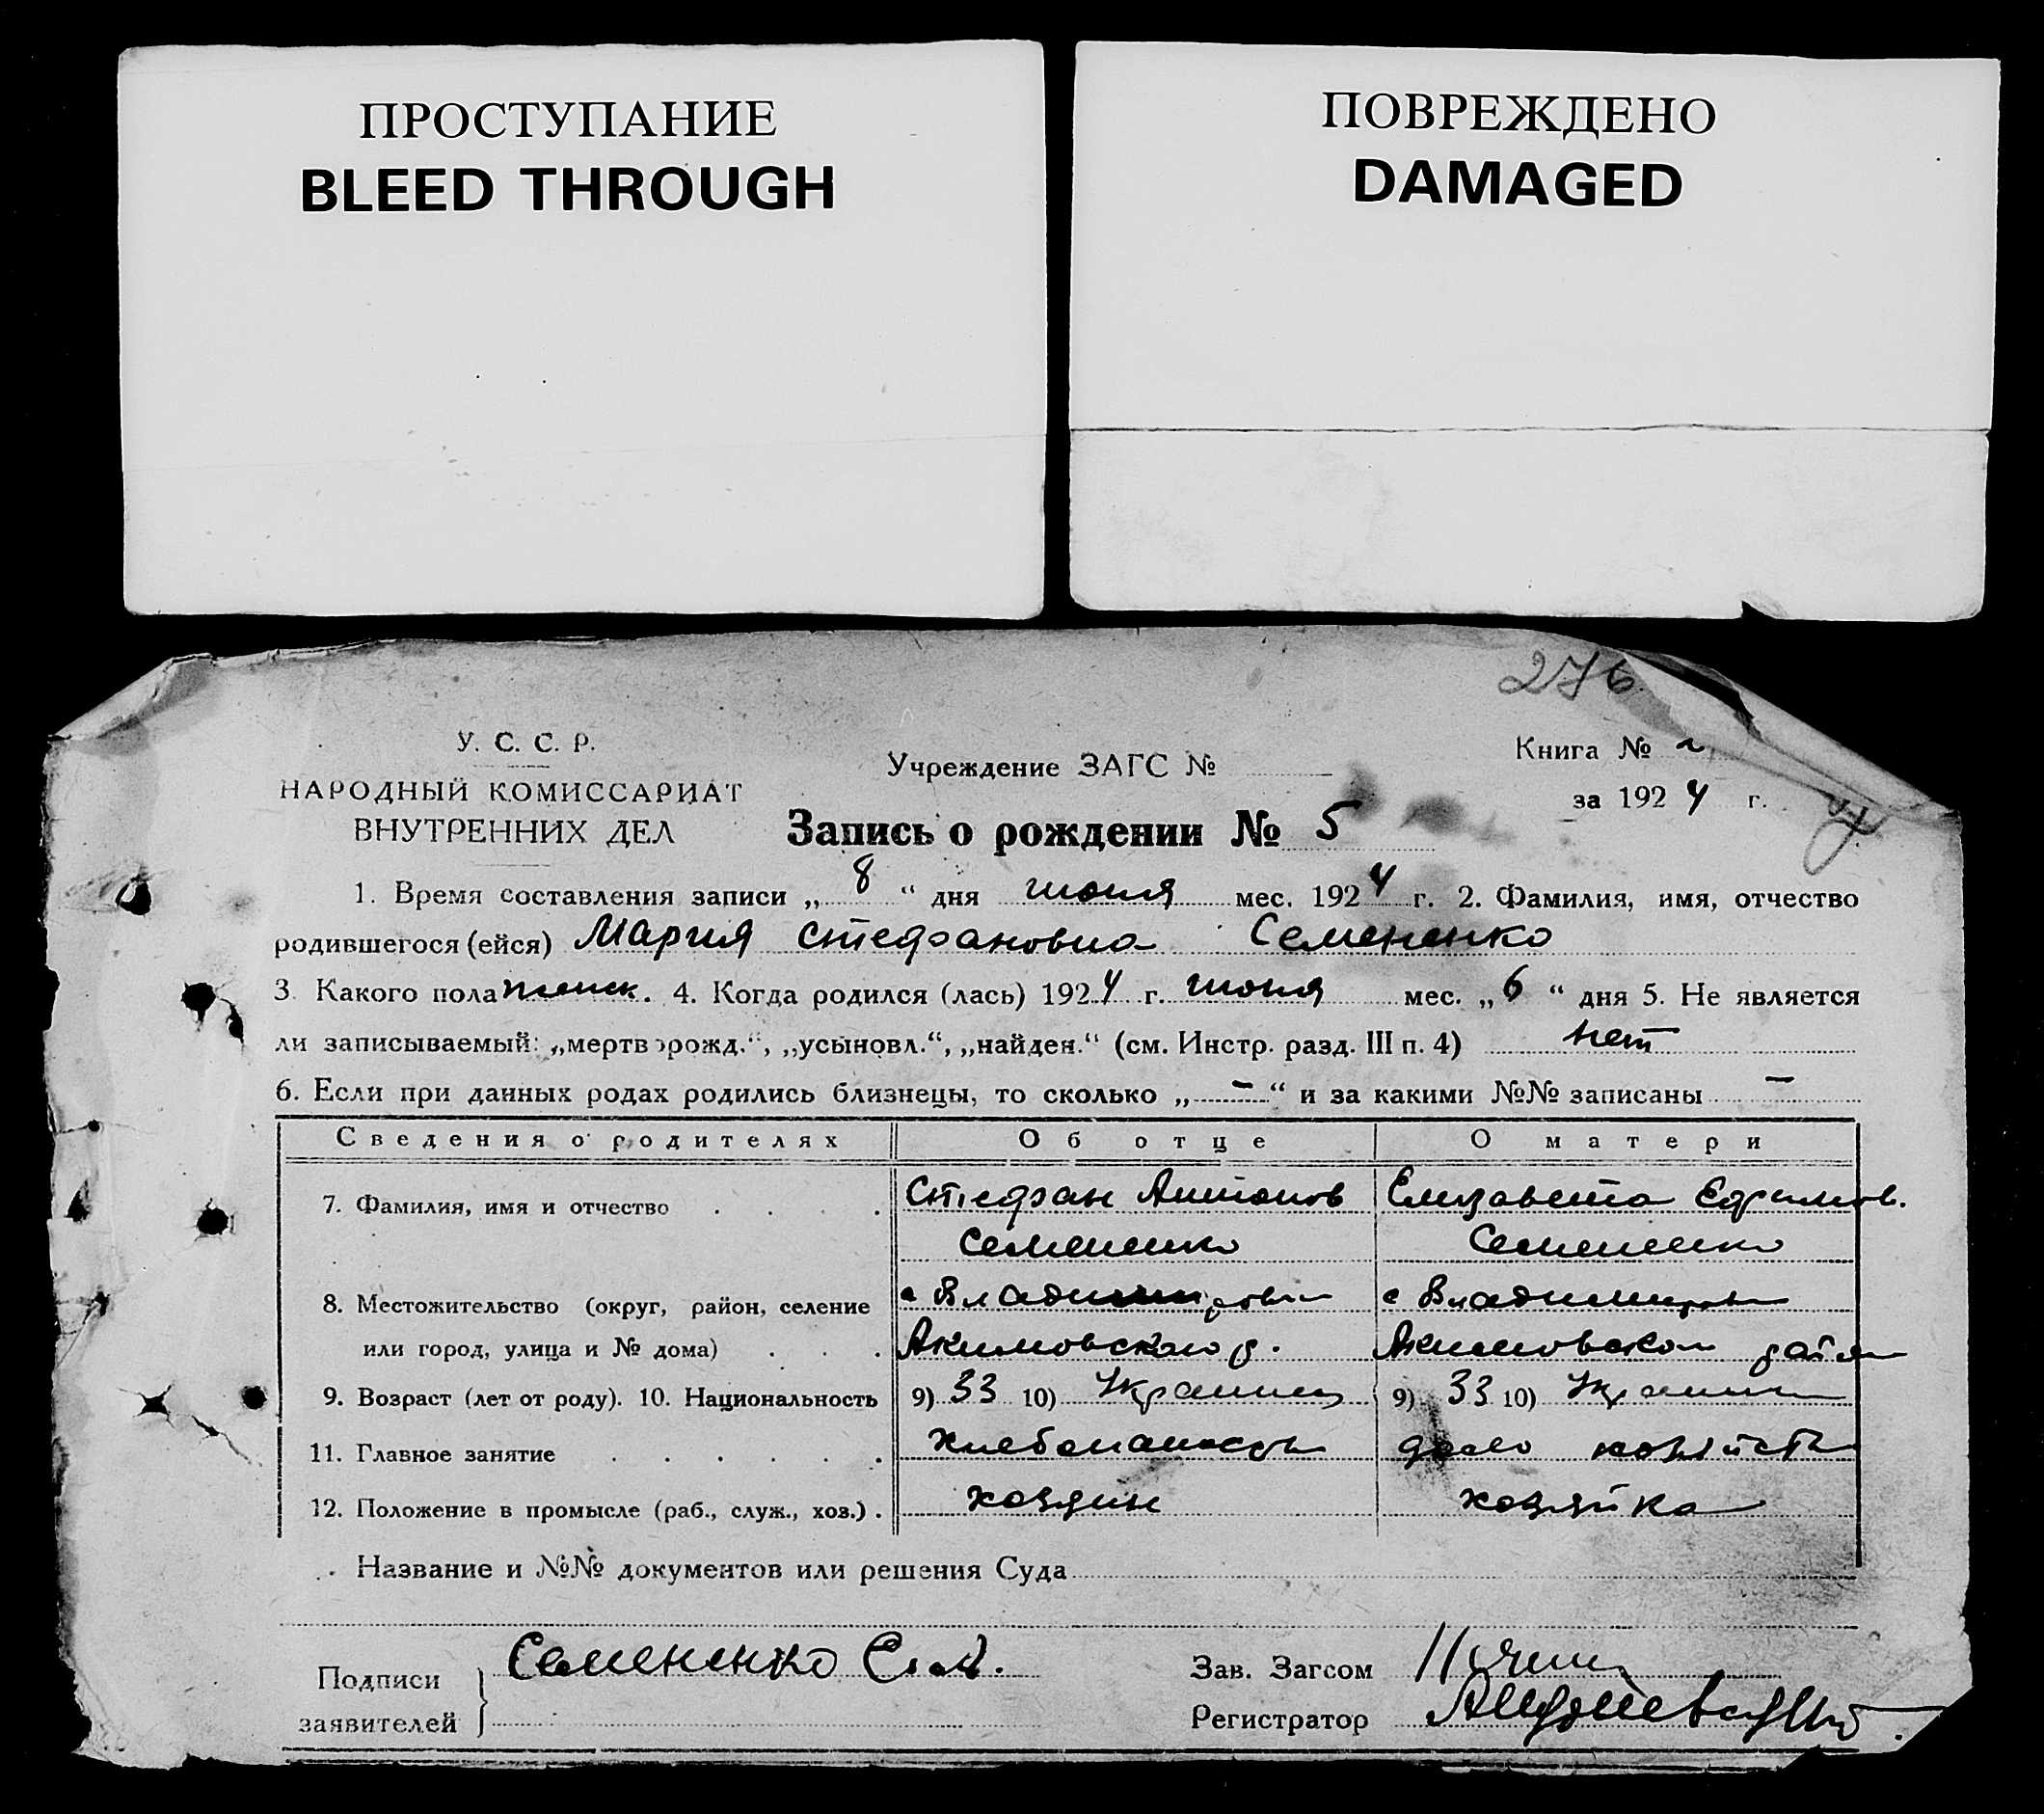 ПРОСТУПАНИЕ
BLEED THROUGH
ПОВРЕЖДЕНО
DAMAGED
276
У. С. С. Р.
НАРОДНЫЙ КОМИССАРИАТ
ВНУТРЕННИХ ДЕЛ
Учреждение ЗАГС №
Книга №
за 1924 г.
Запись о рождении № 5
1. Время составления записи „ 8 “ дня июня мес. 1924 г. 2. Фамилия, имя, отчество
родившегося (ейся) Мария Стефановна Семененко
3. Какого пола женск. 4. Когда родился (лась) 1924 г. июня мес. „ 6 “ дня 5. Не является
ли записываемый: „мертворожд.“, „усыновл.“, „найден.“ (см. Инстр. разд. III п. 4) нет
6. Если при данных родах родились близнецы, то сколько „ — “ и за какими №№ записаны —
Сведения о родителях Об отце О матери
7. Фамилия, имя и отчество . . . . Стефан Антонов Елизавета Ефимов.
Семененко Семененко
8. Местожительство (округ, район, селение с Владимировки с Владимировки
или город, улица и № дома) . . . Акимовского р. Акимовском район
9. Возраст (лет от роду). 10. Национальность 9) 33 10) Украинец 9) 33 10) Украин
11. Главное занятие . . . . . . хозяйств
12. Положение в промысле (раб., служ., хоз.) . хозяин хозяйка
Название и №№ документов или решения Суда
Подписи
заявителей
Семененко С. А.
Зав. Загсом
Регистратор